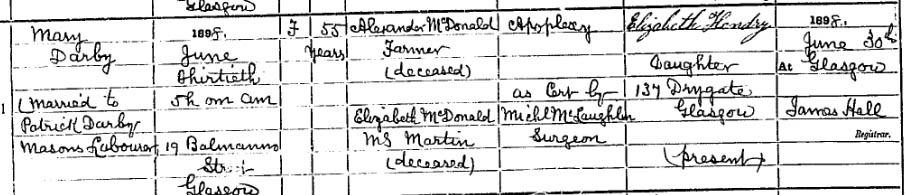 Glasgow
Mary
Darby
1
(Married to
Patrick Darby
Masons Labourer
1898.
June
Thirtieth
5h 0m am
19 Balmanno
Str
Glasgow
F
55
years
Alexander McDonald
Farmer
(deceased)
Elizabeth McDonald
MS Martin
(deceased)
Apoplexy
as Cert by
Michl McLaughlin
Surgeon
Elizabeth Hendry
Daughter
137 Drygate
Glasgow
(present)
1898,
June 30th
At Glasgow
James Hall
Registrar.